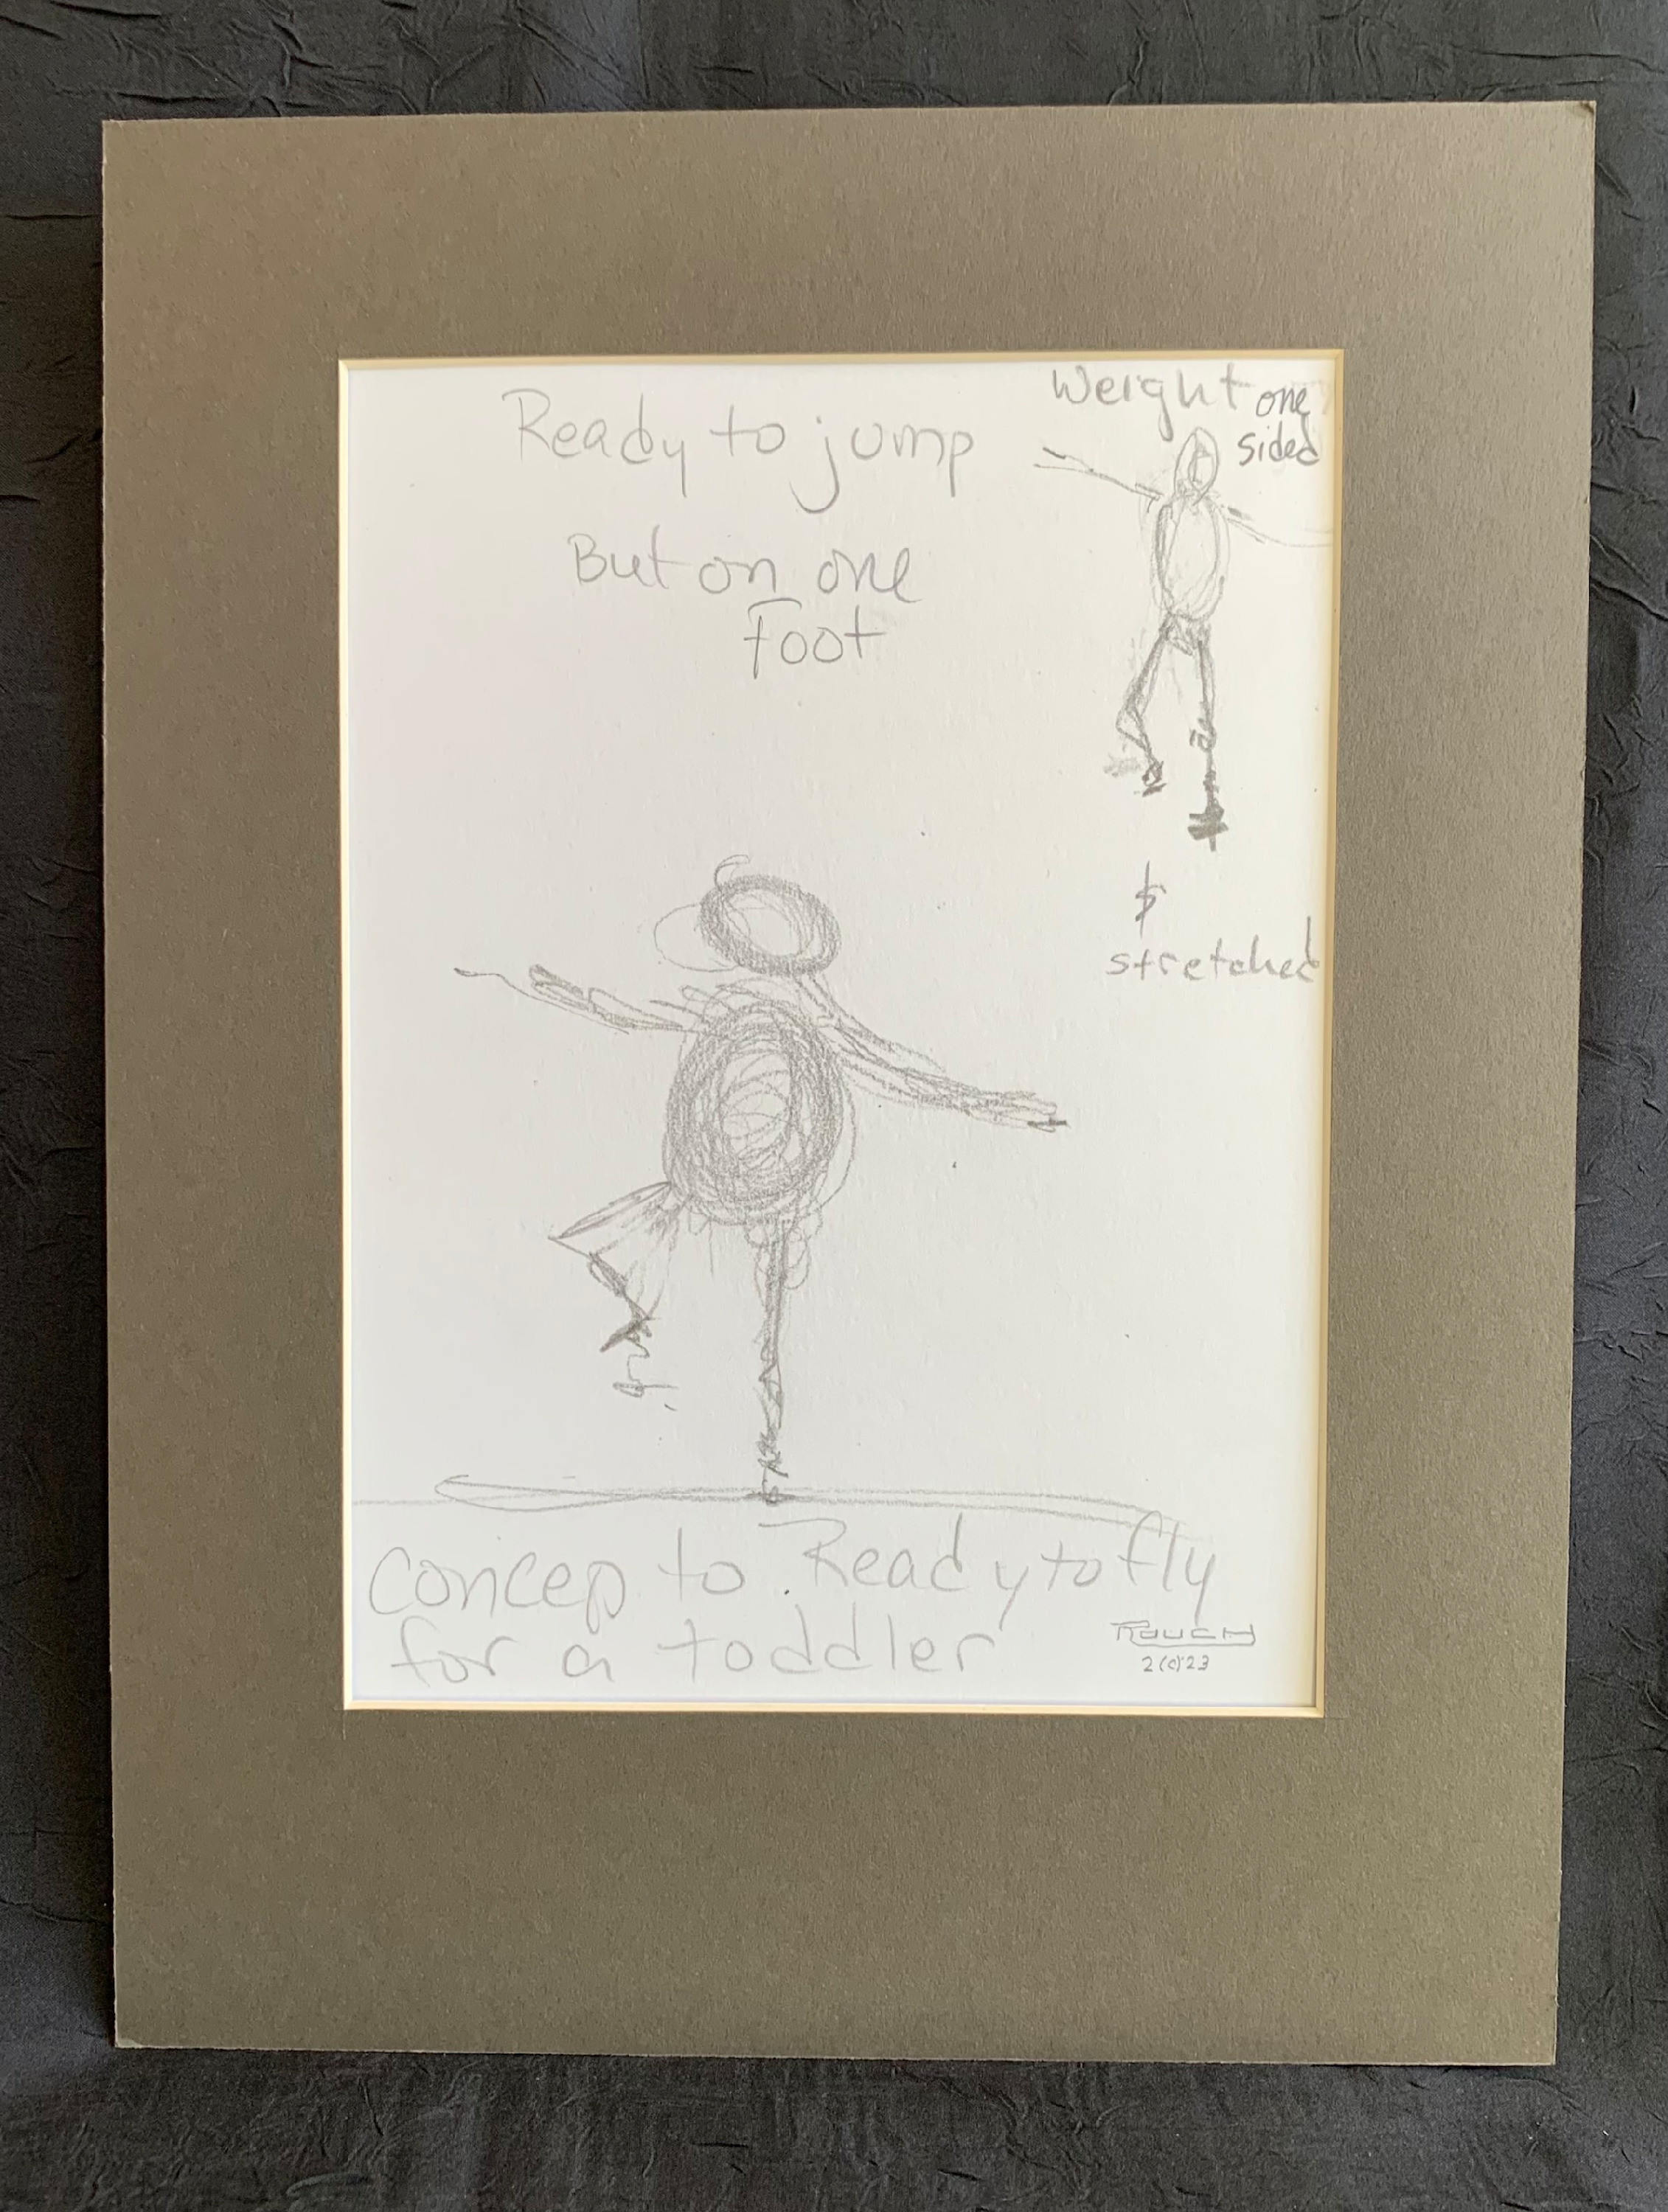 Ready to jump
But on one
Foot
Weight one
sided
&
stretched
concep to Ready to fly
for a toddler
ROUCH
2(c)23